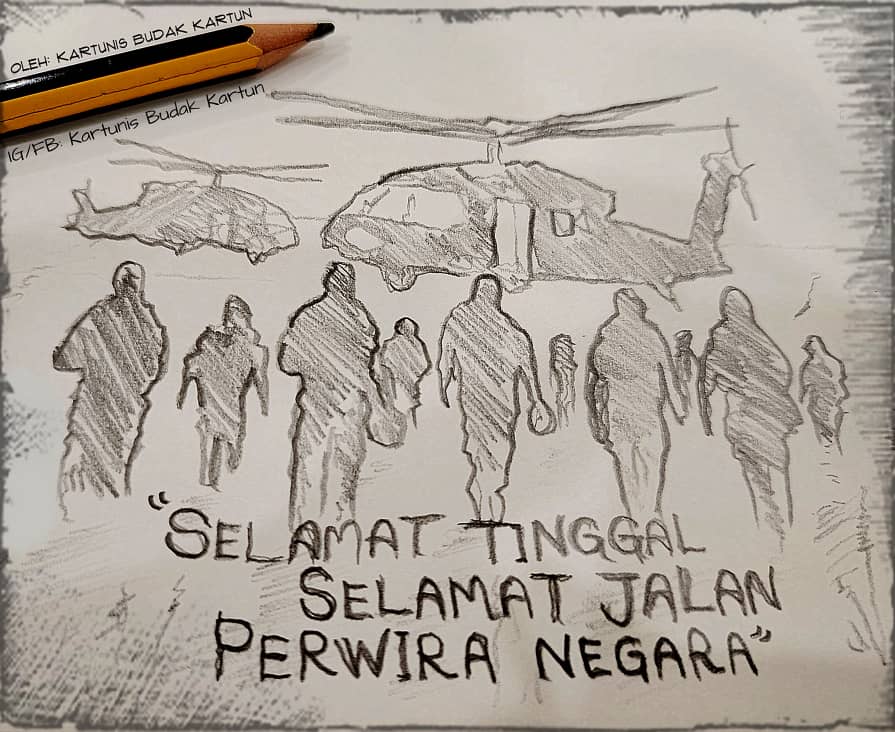 OLEH: KARTUNIS BUDAK KARTUN
IG/FB: Kartunis Budak Kartun
"SELAMAT TINGGAL
SELAMAT JALAN
PERWIRA NEGARA"